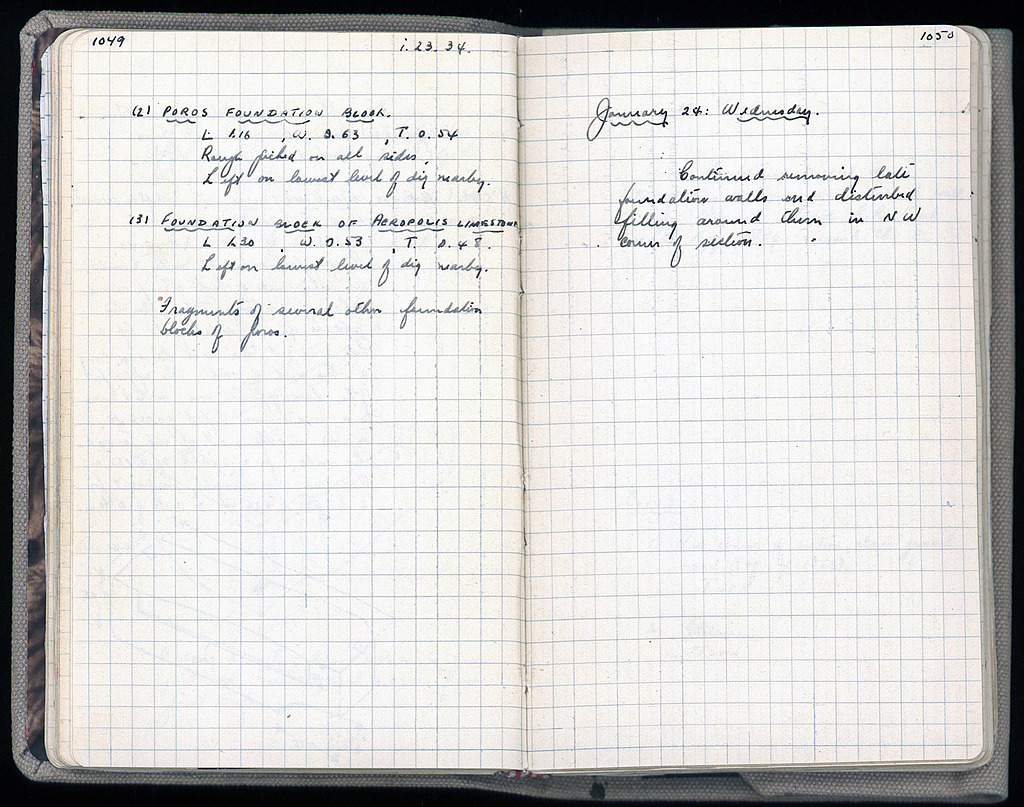 1049
i. 23. 34.
(2) POROS FOUNDATION BLOCK.
L 1.16 , W. 0.63 , T. 0.54
Rough picked on all sides.
Left on lowest level of dig nearby.
(3) FOUNDATION BLOCK OF AEROPOLIS LIMESTONE
L 1.30 , W. 0.53 , T. 0.48.
Left on lowest level of dig nearby.
Fragments of several other foundation
blocks of poros.
1050
January 24: Wednesday.
Continued removing late
foundation walls and disturbed
filling around them in NW
corner of section.